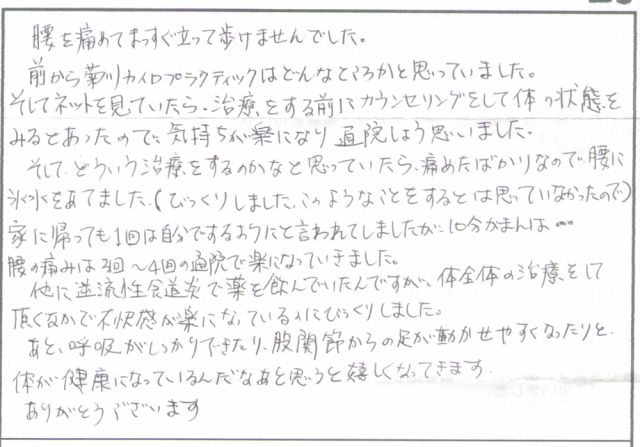 腰を痛めてまっすぐ立って歩けませんでした。
前から菊川カイロプラクティックはどんなところかと思っていました。
そしてネットを見ていたら、治療をする前にカウンセリングをして体の状態を
みるとあったので、気持ちが楽になり通院しよう思いました。
そして、どういう治療をするのかなと思っていたら、痛めたばかりなので、腰に
氷水をあてました。(びっくりしました。このようなことをするとは思っていなかったので)
家に帰っても1回は自分でするようにと言われてしましたが、10分がまんは…
腰の痛みは3回〜4回の通院で楽になっていきました。
他に逆流性食道炎で薬を飲んでいたんですが、体全体の治療をして
頂くなかで不快感が楽になっているのにびっくりしました。
あと、呼吸がしっかりできたり、股関節からの足が動かせやすくなったりと、
体が健康になっているんだなあと思うと嬉しくなってきます。
ありがとうございます